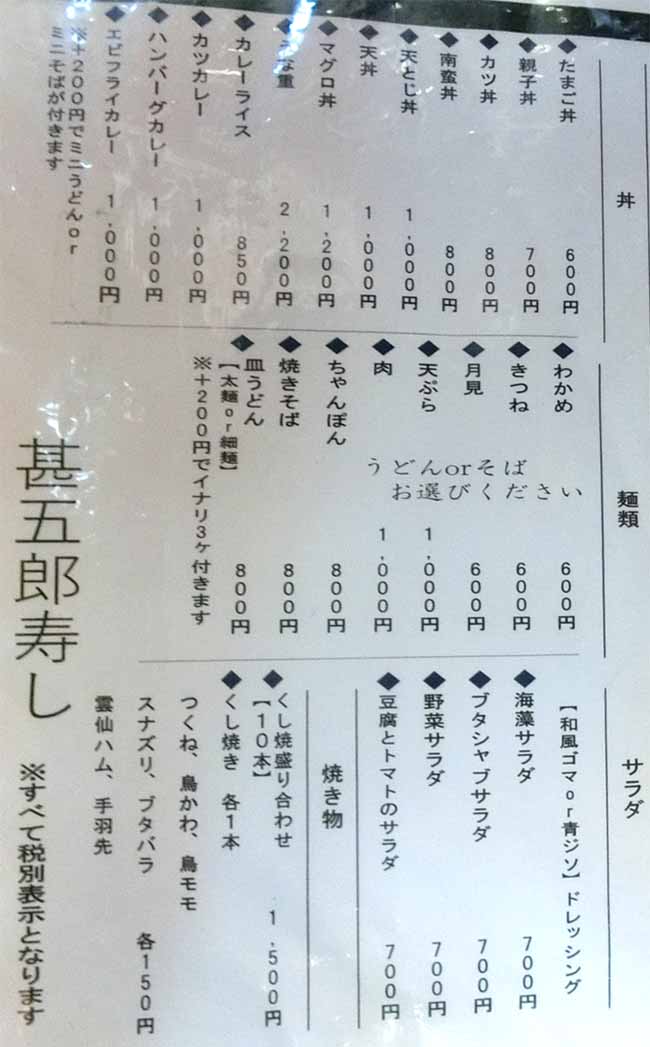 丼
◆たまご丼 600円
◆親子丼 700円
◆カツ丼 800円
◆南蛮丼 800円
◆天とじ丼 1,000円
◆天丼 1,000円
◆マグロ丼 1,200円
◆な重 2,200円
◆カレーライス 850円
◆カツカレー 1,000円
◆ハンバーグカレー 1,000円
◆エビフライカレー 1,000円
※+200円でミニうどんor
ミニそばが付きます
麺類
◆わかめ 600円
◆きつね 600円
◆月見 600円
◆天ぷら 1,000円
◆肉 1,000円
うどんorそば
お選びください
◆ちゃんぽん 800円
◆焼きそば 800円
◆皿うどん 800円
【太麺or細麺】
※+200円でイナリ3ヶ付きます
サラダ
【和風ゴマor青ジソ】ドレッシング
◆海藻サラダ 700円
◆ブタシャブサラダ 700円
◆野菜サラダ 700円
◆豆腐とトマトのサラダ 700円
焼き物
◆くし焼盛り合わせ 1,500円
【10本】
◆くし焼き 各1本
つくね、鳥かわ、鳥モモ
スナズリ、ブタバラ 各150円
雲仙ハム、手羽先
甚五郎寿し ※すべて税別表示となります